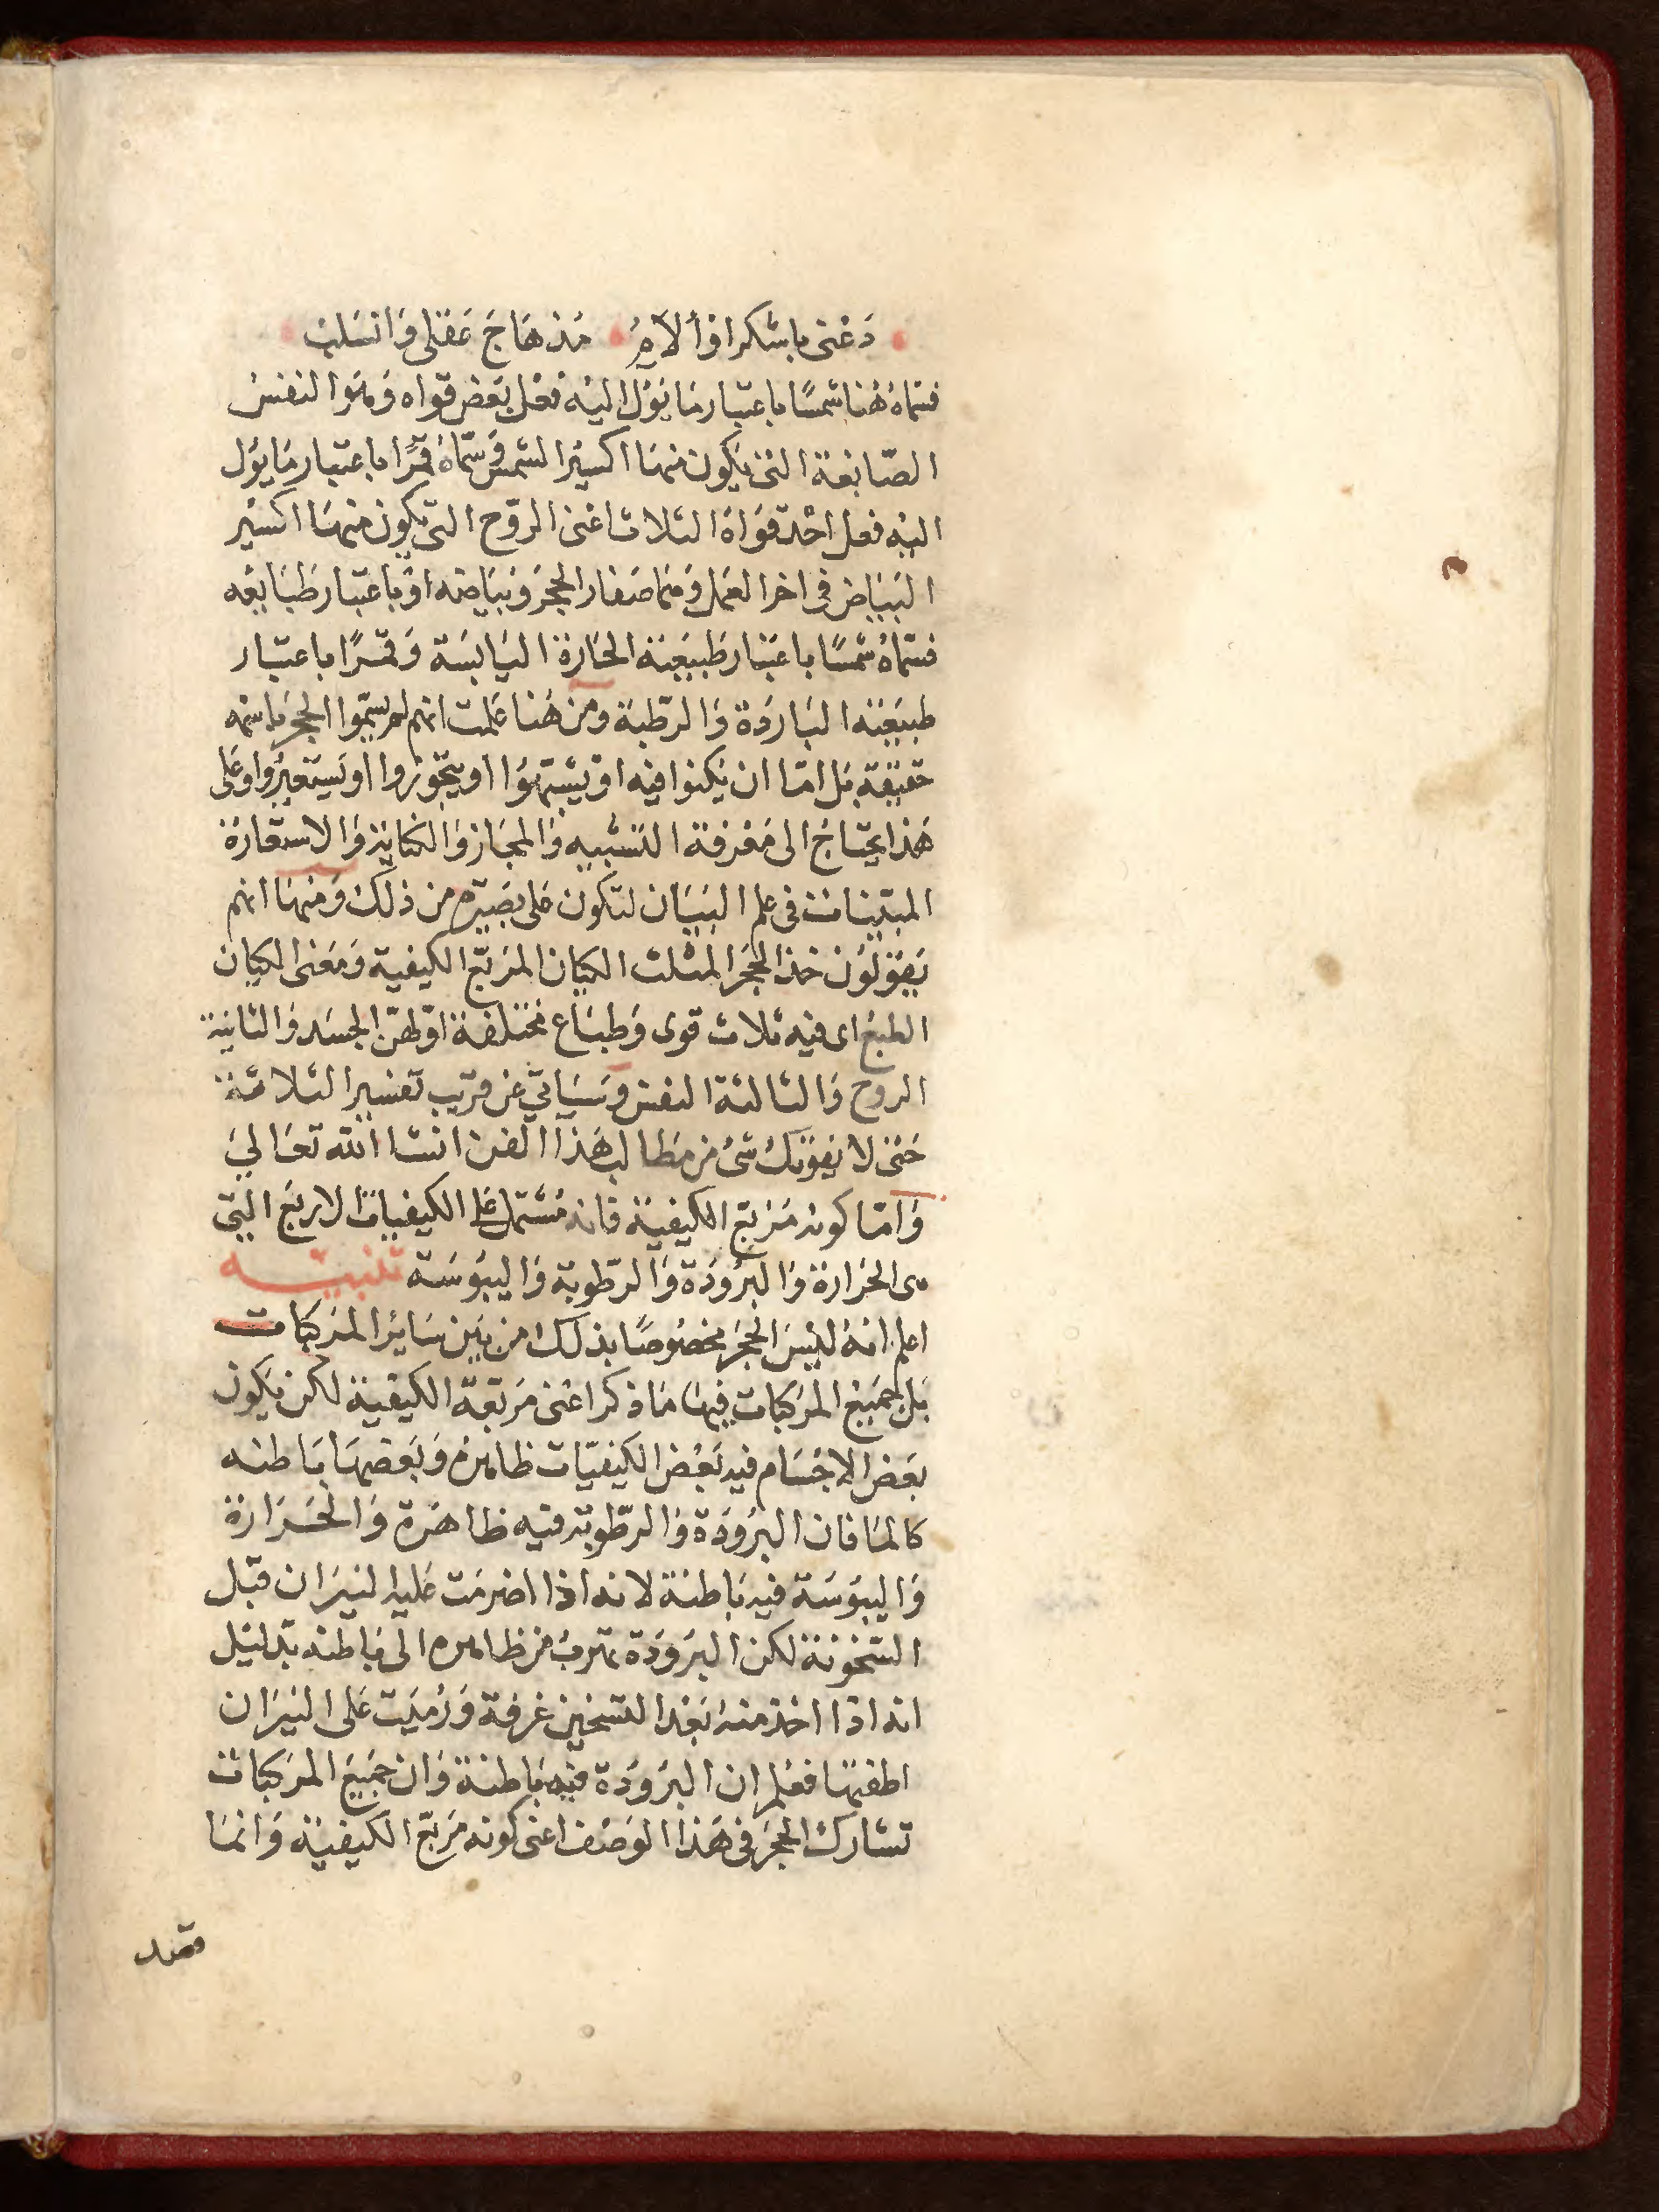 دَعْنى باشكرا فألآمُ مذهَاجَ عَقلى وَانسَلبْ
فسَماهُ هُنا شمسًا باعتبار مَا يَؤل اليْه فعْل بَعض قواه وَهوَ النفسْ
الصّابغة التى يكون منهَا اكسيْر الشمس وَسَمّاهُ قمرًا باعتبار مَا يَؤل
اليْه فعل احْدَ قوَاهُ الثلاث اعْنى الروّح التى يكون منهَا اكسيْر
البَيَاض فى اخر العَمَل وَهمَا صَفار الحجَر وَبيَاضه اوْ باعتبار طَبَايعه
فسَمّاهُ شمْسًا باعتبار طَبيعَته الحَارة اليَابسَة وَقمرًا باعتبار
طبيَعته البَاردَة وَالرطبة ومن هُنا علمت انهم لم يسَمّوا الحجَر باسمه
حَقيقة بَل امّا ان يكنوا فيه اوْ يشبّهوُا او يتجَوزوا او يَستعيْروا وعَلى
هَذا يحتاجُ الى مَعْرفة التَشبيه وَالمجَاز وَالكنايَة وَالاستعَارَة
المبَيّنات فى علم البَيَان لتكون عَلى بَصَيْره من ذلكَ وَمنهَا انهم
يَقوْلوُن خذ الحجَر المثلث الكيَان المرَبّع الكيفية وَمَعْنى الكيَان
الطبعْ اى فيه ثلاث قوى وَطبَاع مختلفة اوّلهنّ الجسَد وَالثانيَة
الروح وَالثالثة النفس وَسَيَاتى عَن قريب تفسير الثلاثة
حَتى لا يفوتكَ شَئ من مَطالب هَذا الفن انشا الله تعَالىَ
وَامّا كونه مَرَبّع الكيفيَة فانه مُشتمل عَلى الكيفيات الاربَع التى
هى الحَرارة وَالبُروُدَة وَالرطوبة وَاليبُوسَة تنبيـــه
اعلم انهُ ليْسَ الحجَر مخصُوصًا بذلكَ من بَين سَاير المرَكبَات
بَل جَميْع المرَكبَات فيهَا مَا ذكر اعْنى مَرَبّعَة الكيفيَة لكن يَكون
بَعَض الاجْسَام فيه بَعْض الكيفيّات ظاهرة وَبَعضهَا بَاطنه
كالمَا فان البُروُدَة وَالرطوبَة فيه ظاهَرة وَالحَرَارَة
وَاليبوُسَة فيه بَاطنة لانه اذا اضرمَت عَليه النيرَان قبَل
السّخونَة لكن البرَوُدَة تهربُ من ظاهره الى بَاطنه بدَليْل
انه اذا اخذ منهُ بَعْد التسْخين غرفَة وَرُميَت عَلى النيْرَان
اطفتهَا فعُلم ان البرَوُدَة فيْه بَاطنَة وَان جَميَع المرَكبَات
تشارك الحجَر فى هَذا الوَصْف اعنى كونه مَرَبّع الكيفيَة وَانمَا
قصد